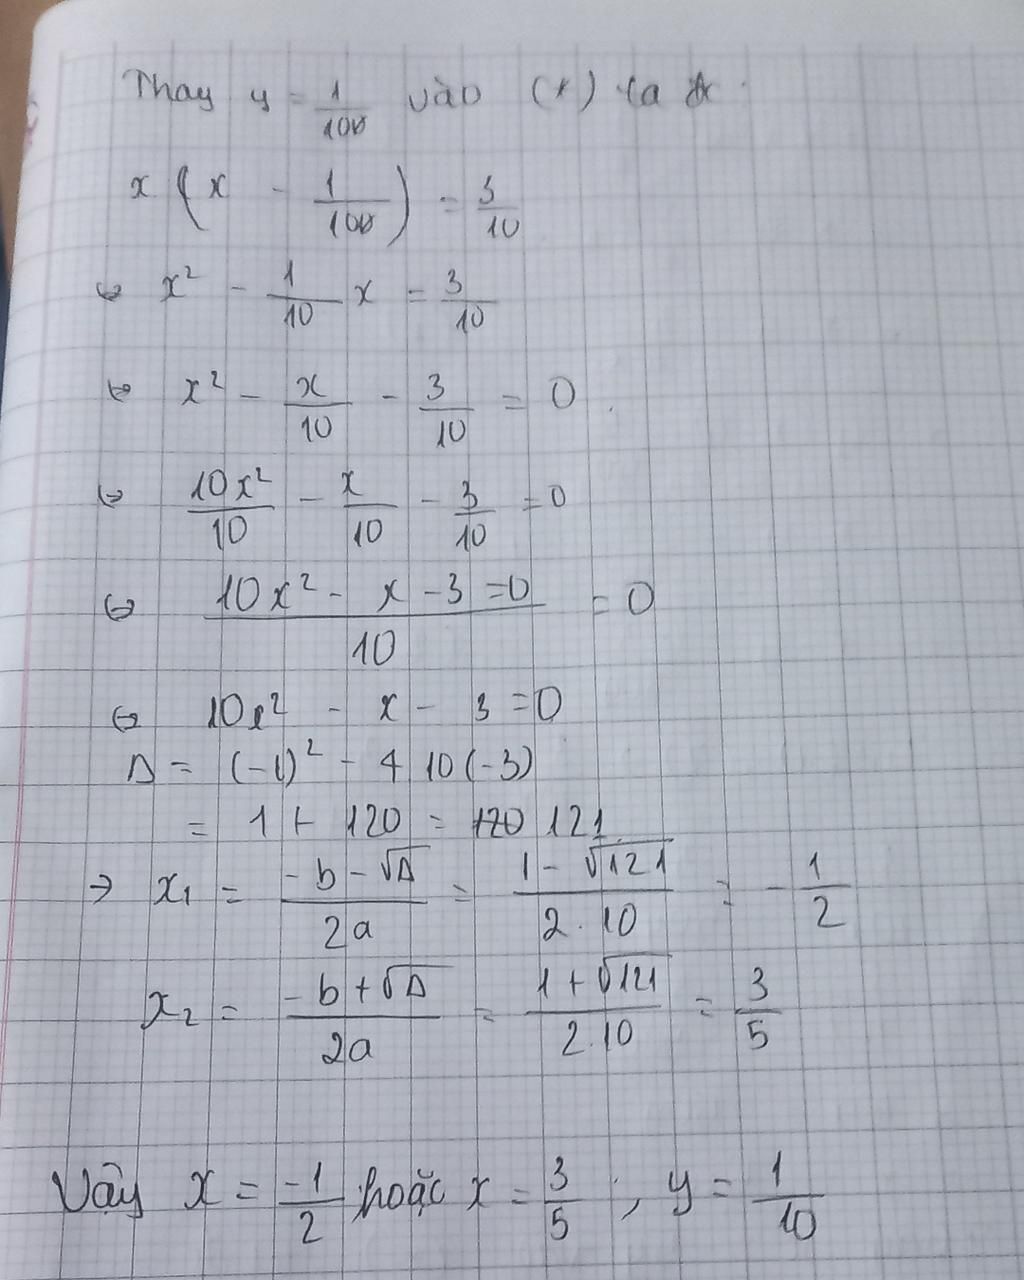 Thay y = 1/10 vào (*) ta
x (x - 1/10) = 3/10
⇔ x² - 1/10 x = 3/10
⇔ x² - x/10 - 3/10 = 0
⇔ 10x²/10 - x/10 - 3/10 = 0
⇔ (10x² - x - 3 = 0)/10 = 0
⇔ 10x² - x - 3 = 0
Δ = (-1)² - 4 10 (-3)
= 1 + 120 = 121
→ x₁ = (-b - √Δ)/2a = (1 - √121)/(2.10) = -1/2
x₂ = (-b + √Δ)/2a = (1 + √121)/(2.10) = 3/5
Vậy x = -1/2 hoặc x = 3/5 ; y = 1/10